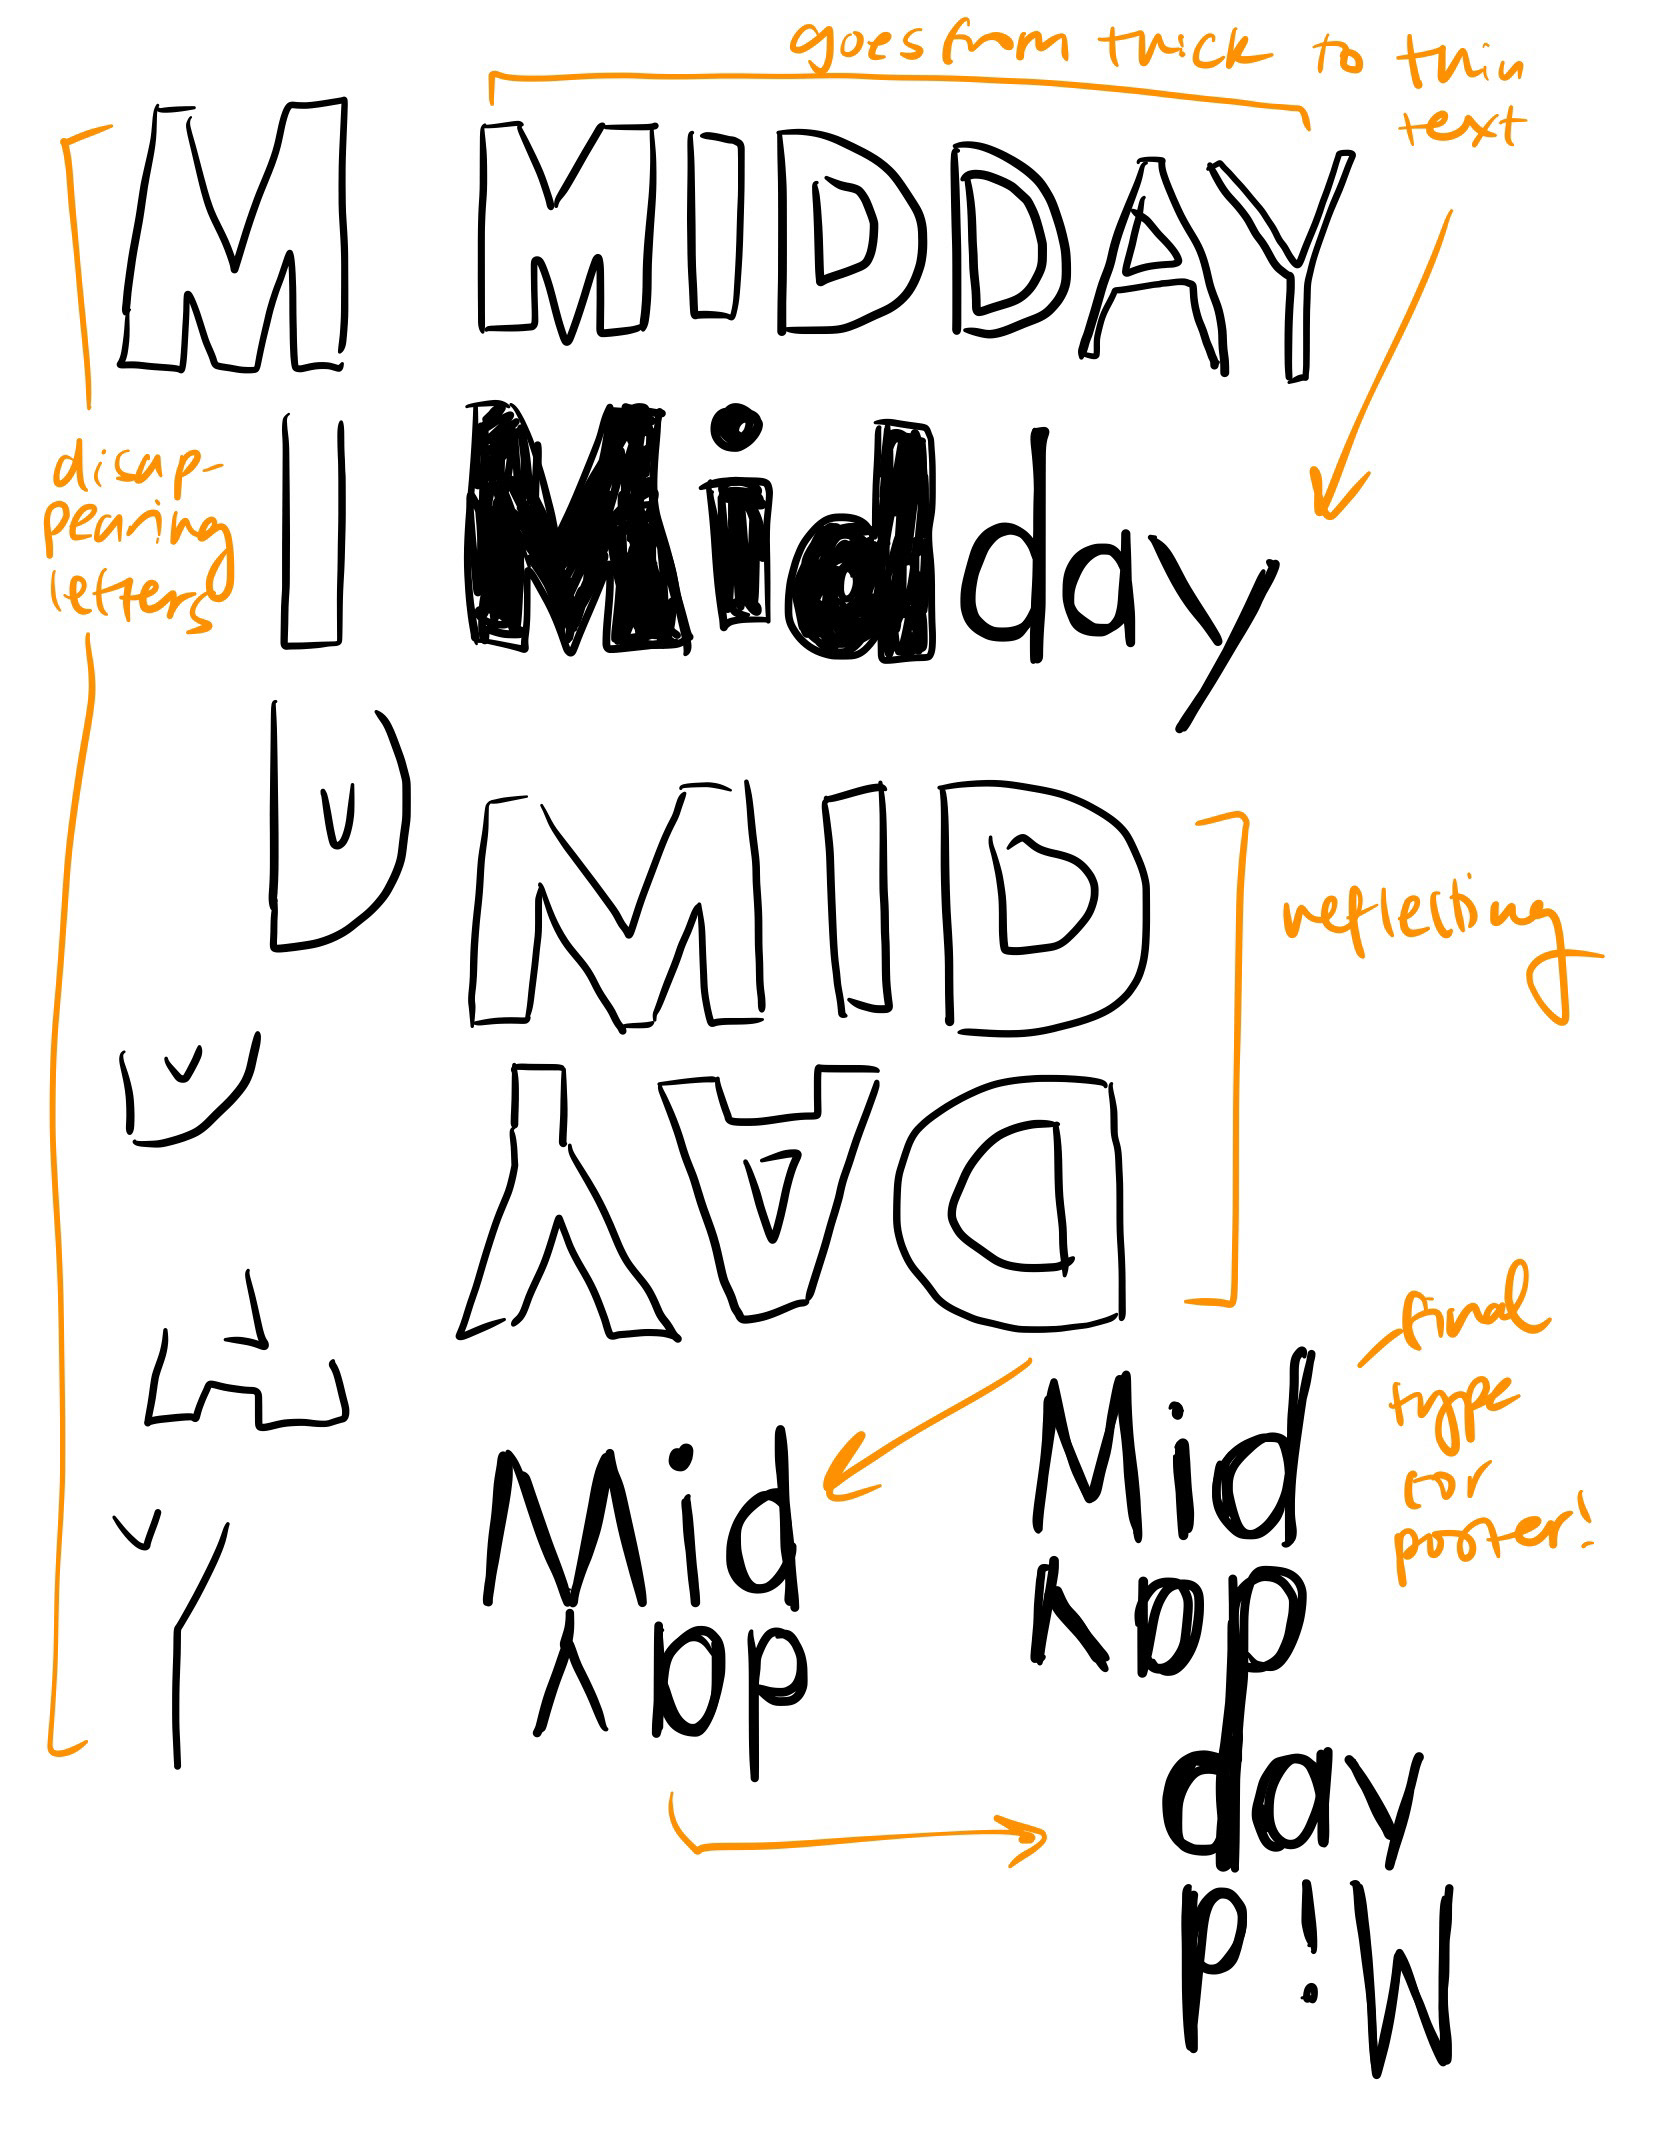 goes from thick to thin
text
M
I
D
D
A
Y
disap-
pearing
letters
MIDDAY
Midday
MID
DAY
reflecting
Mid
day
Mid
day
day
Mid
final
type
for
poster!